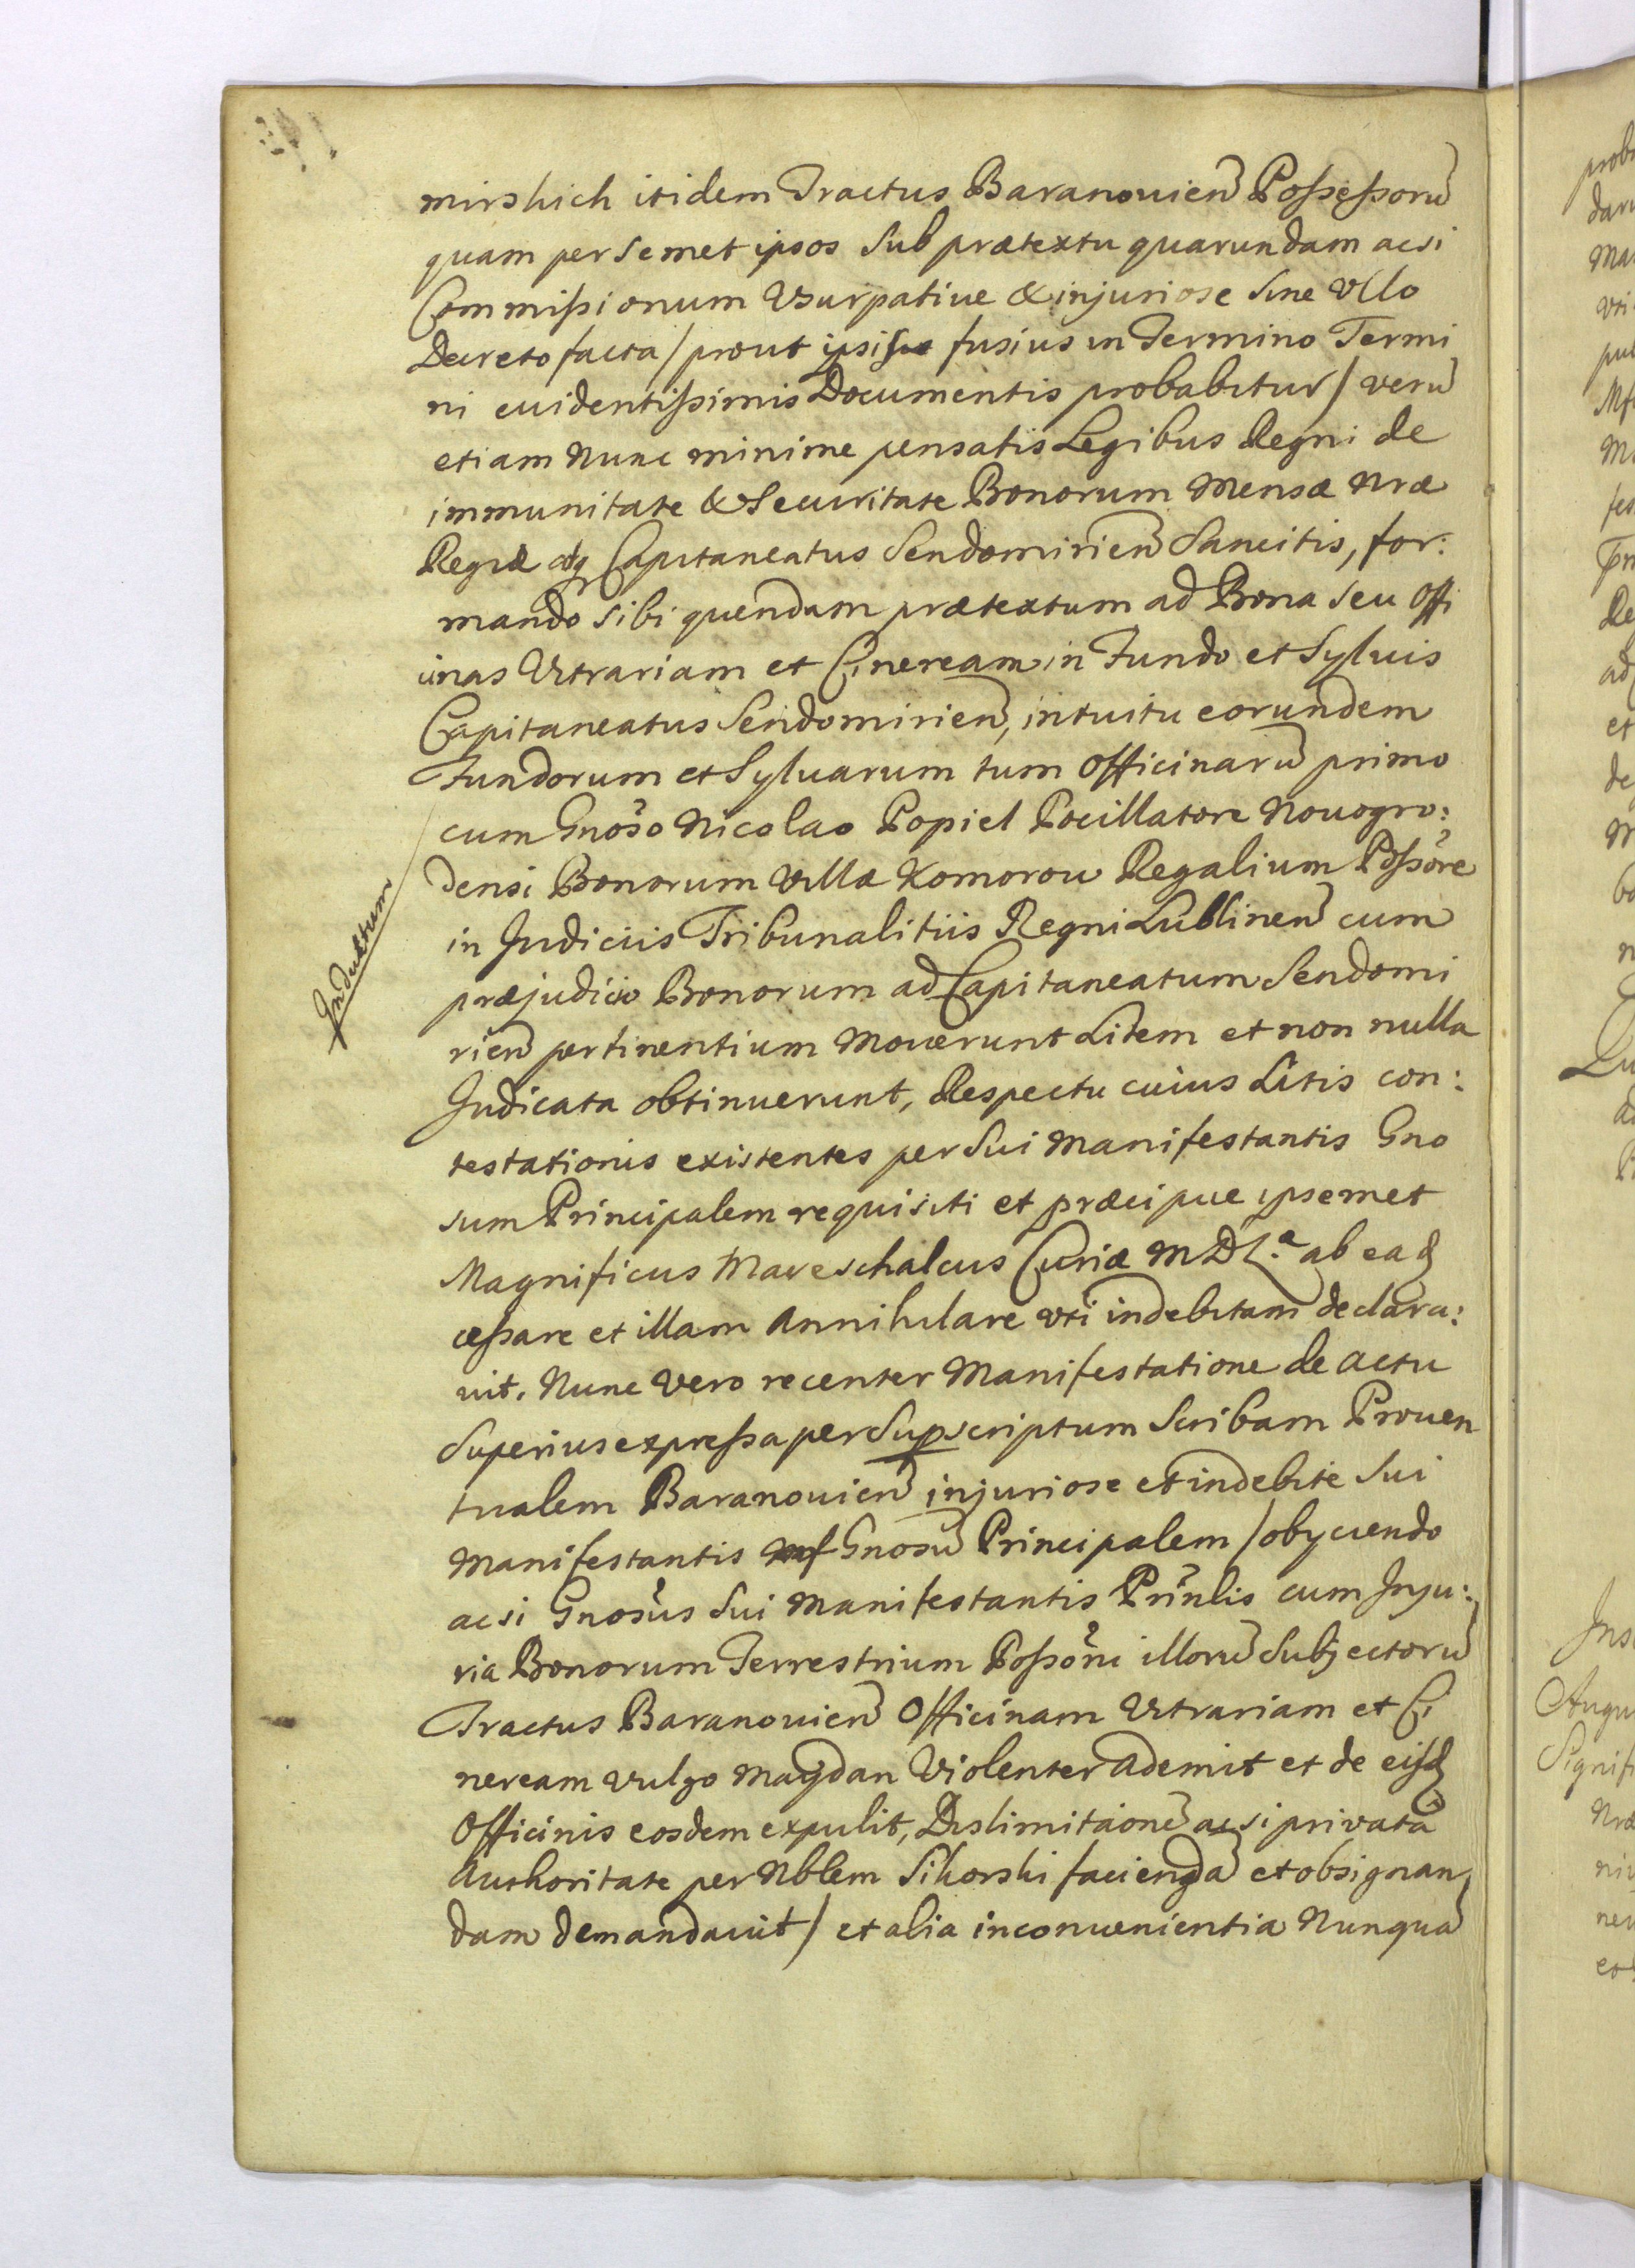 mirskich itidem Tractus Baranouien̄ Possessorū
quam per semet ipsos sub prætextu quarundam acsi
Commissionum Vsurpatiue & injuriose sine Vllo
Decreto facta / prout fusius in Termino Termi
ni euidentissimis Documentis probabitur / verū
etiam Nunc minime pensatis Legibus Regni de
immunitate & Securitate Bonorum Mensæ Nræ
Regiæ atq Capitaneatus Sendomirien̄ Sancitis, for:
mando sibi quendam prætextum ad Bona seu Offi
cinas Vitrariam et Cineream in Fundo et Syluis
Capitaneatus Sendomirien̄, intuitu eorundem
Fundorum et Syluarum tum Officinarū primo
cum Gnõso Nicolao Popiel Pocillatore Nouogro:
densi Bonorum Villæ Komorow Regalium Possõre
Induktum
in Judiciis Tribunalitiis Regni Lublinen̄ cum
præjudicio Bonorum ad Capitaneatum Sendomi
rien̄ pertinentium Mouerunt Litem et non nulla
Judicata obtinuerunt, Respectu cuius Litis con:
testationis existentes per Sui Manifestantis Gno
sum Principalem requisiti et præcipue ipsemet
Magnificus Mareschalcus Curiæ M D L.æ ab ead
cessare et illam Annihilare vti indebitam declara:
uit. Nunc Vero recenter Manifestatione de actu
Superius expressa per Supscriptum Scribam Prouen
tualem Baranouien̄ injuriose et indebite Sui
Manifestantis Gnosū Principalem / obyciendo
acsi Gnosũs Sui Manifestantis Prĩnlis cum Inju:
ria Bonorum Terrestrium Possõni illorū Subjectorū
Tractus Baranouien̄ Officinam Vitrariam et Ci
neream Vulgo Maydan Violenter Ademit et de eisd
Officinis eosdem expulit, Dislimitaionē acsi privatā
Authoritate per Nblem Sikorski faciendā et obsignan
dam demandauit / et alia inconuenientia Nunquā